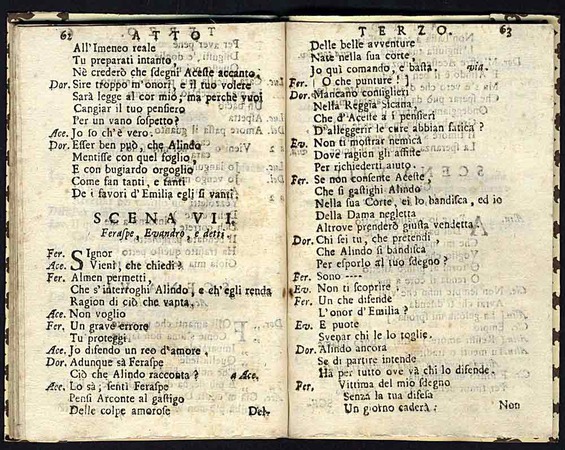 62 ATTO
All'Imeneo reale
Tu preparati intanto,
Nè crederò che sdegni Aceste accanto.
Dor. Sire troppo m'onori, e il tuo volere
Sarà legge al cor mio; ma perchè vuoi
Cangiar il tuo pensiero
Per un vano sospetto?
Ace. Jo so ch'è vero.
Dor. Esser ben può, che Alindo
Mentisse con quel foglio,
E con bugiardo orgoglio
Come fan tanti, e tanti
De i favori d'Emilia egli si vanti.
SCENA VII.
Feraspe, Evandro, e detti.
Fer. SIgnor
Ace. Vieni, che chiedi?
Fer. Almen permetti,
Che s'interroghi Alindo, e ch'egli renda
Ragion di ciò che vanta.
Ace. Non voglio
Fer. Un grave errore
Tu proteggi.
Ace. Jo difendo un reo d'amore.
Dor. Adunque sà Feraspe
Ciò che Alindo racconta? a Ace.
Ace. Lo sà; senti Feraspe
Pensi Arconte al gastigo
Delle colpe amorose
Del-
TERZO. 63
Delle belle avventure
Nate nella sua corte,
Jo quì comando, e basta. via.
Fer. O che punture!
Dor. Mancano consiglieri
Nella Reggia Sicana,
Che d'Aceste a i pensieri
D'alleggerir le cure abbian fatica?
Ev. Non ti mostrar nemica
Dove ragion gli assiste
Per richiederti aiuto.
Fer. Se non consente Aceste,
Che si gastighi Alindo
Nella sua Corte, ei lo bandisca, ed io
Della Dama negletta
Altrove prenderò giusta vendetta.
Dor. Chi sei tu, che pretendi,
Che Alindo si bandisca
Per esporlo al tuo sdegno?
Fer. Sono ----
Ev. Non ti scoprire.
Fer. Un che difende
L'onor d'Emilia?
Ev. E puote
Svepar chi le lo toglie.
Dor. Alindo ancora
Se di partire intende
Hà per tutto ove và chi lo difende.
Fer. Vittima del mio sdegno
Senza la tua difesa
Un giorno caderà:
Non